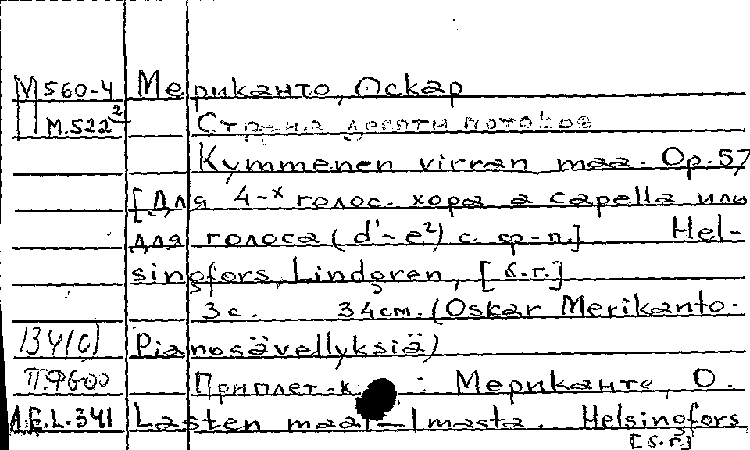 М560-4 Мериканто, Оскар
М.522² Страна десяти потоков
Kymmenen virran maa. Op.57
[Для 4-х голос. хора a capella или
для голоса (d'-e²) с ф-п.] Hel-
singfors, Lindgren, [б.г.]
3с. 34см. (Oskar Merikanto.
Pianosävellyksiä)
П.Ф600 Приплет. к : Мериканто, О.
Л.Е.L.341 Lasten maailmasta. Helsingfors,
[б.г.]